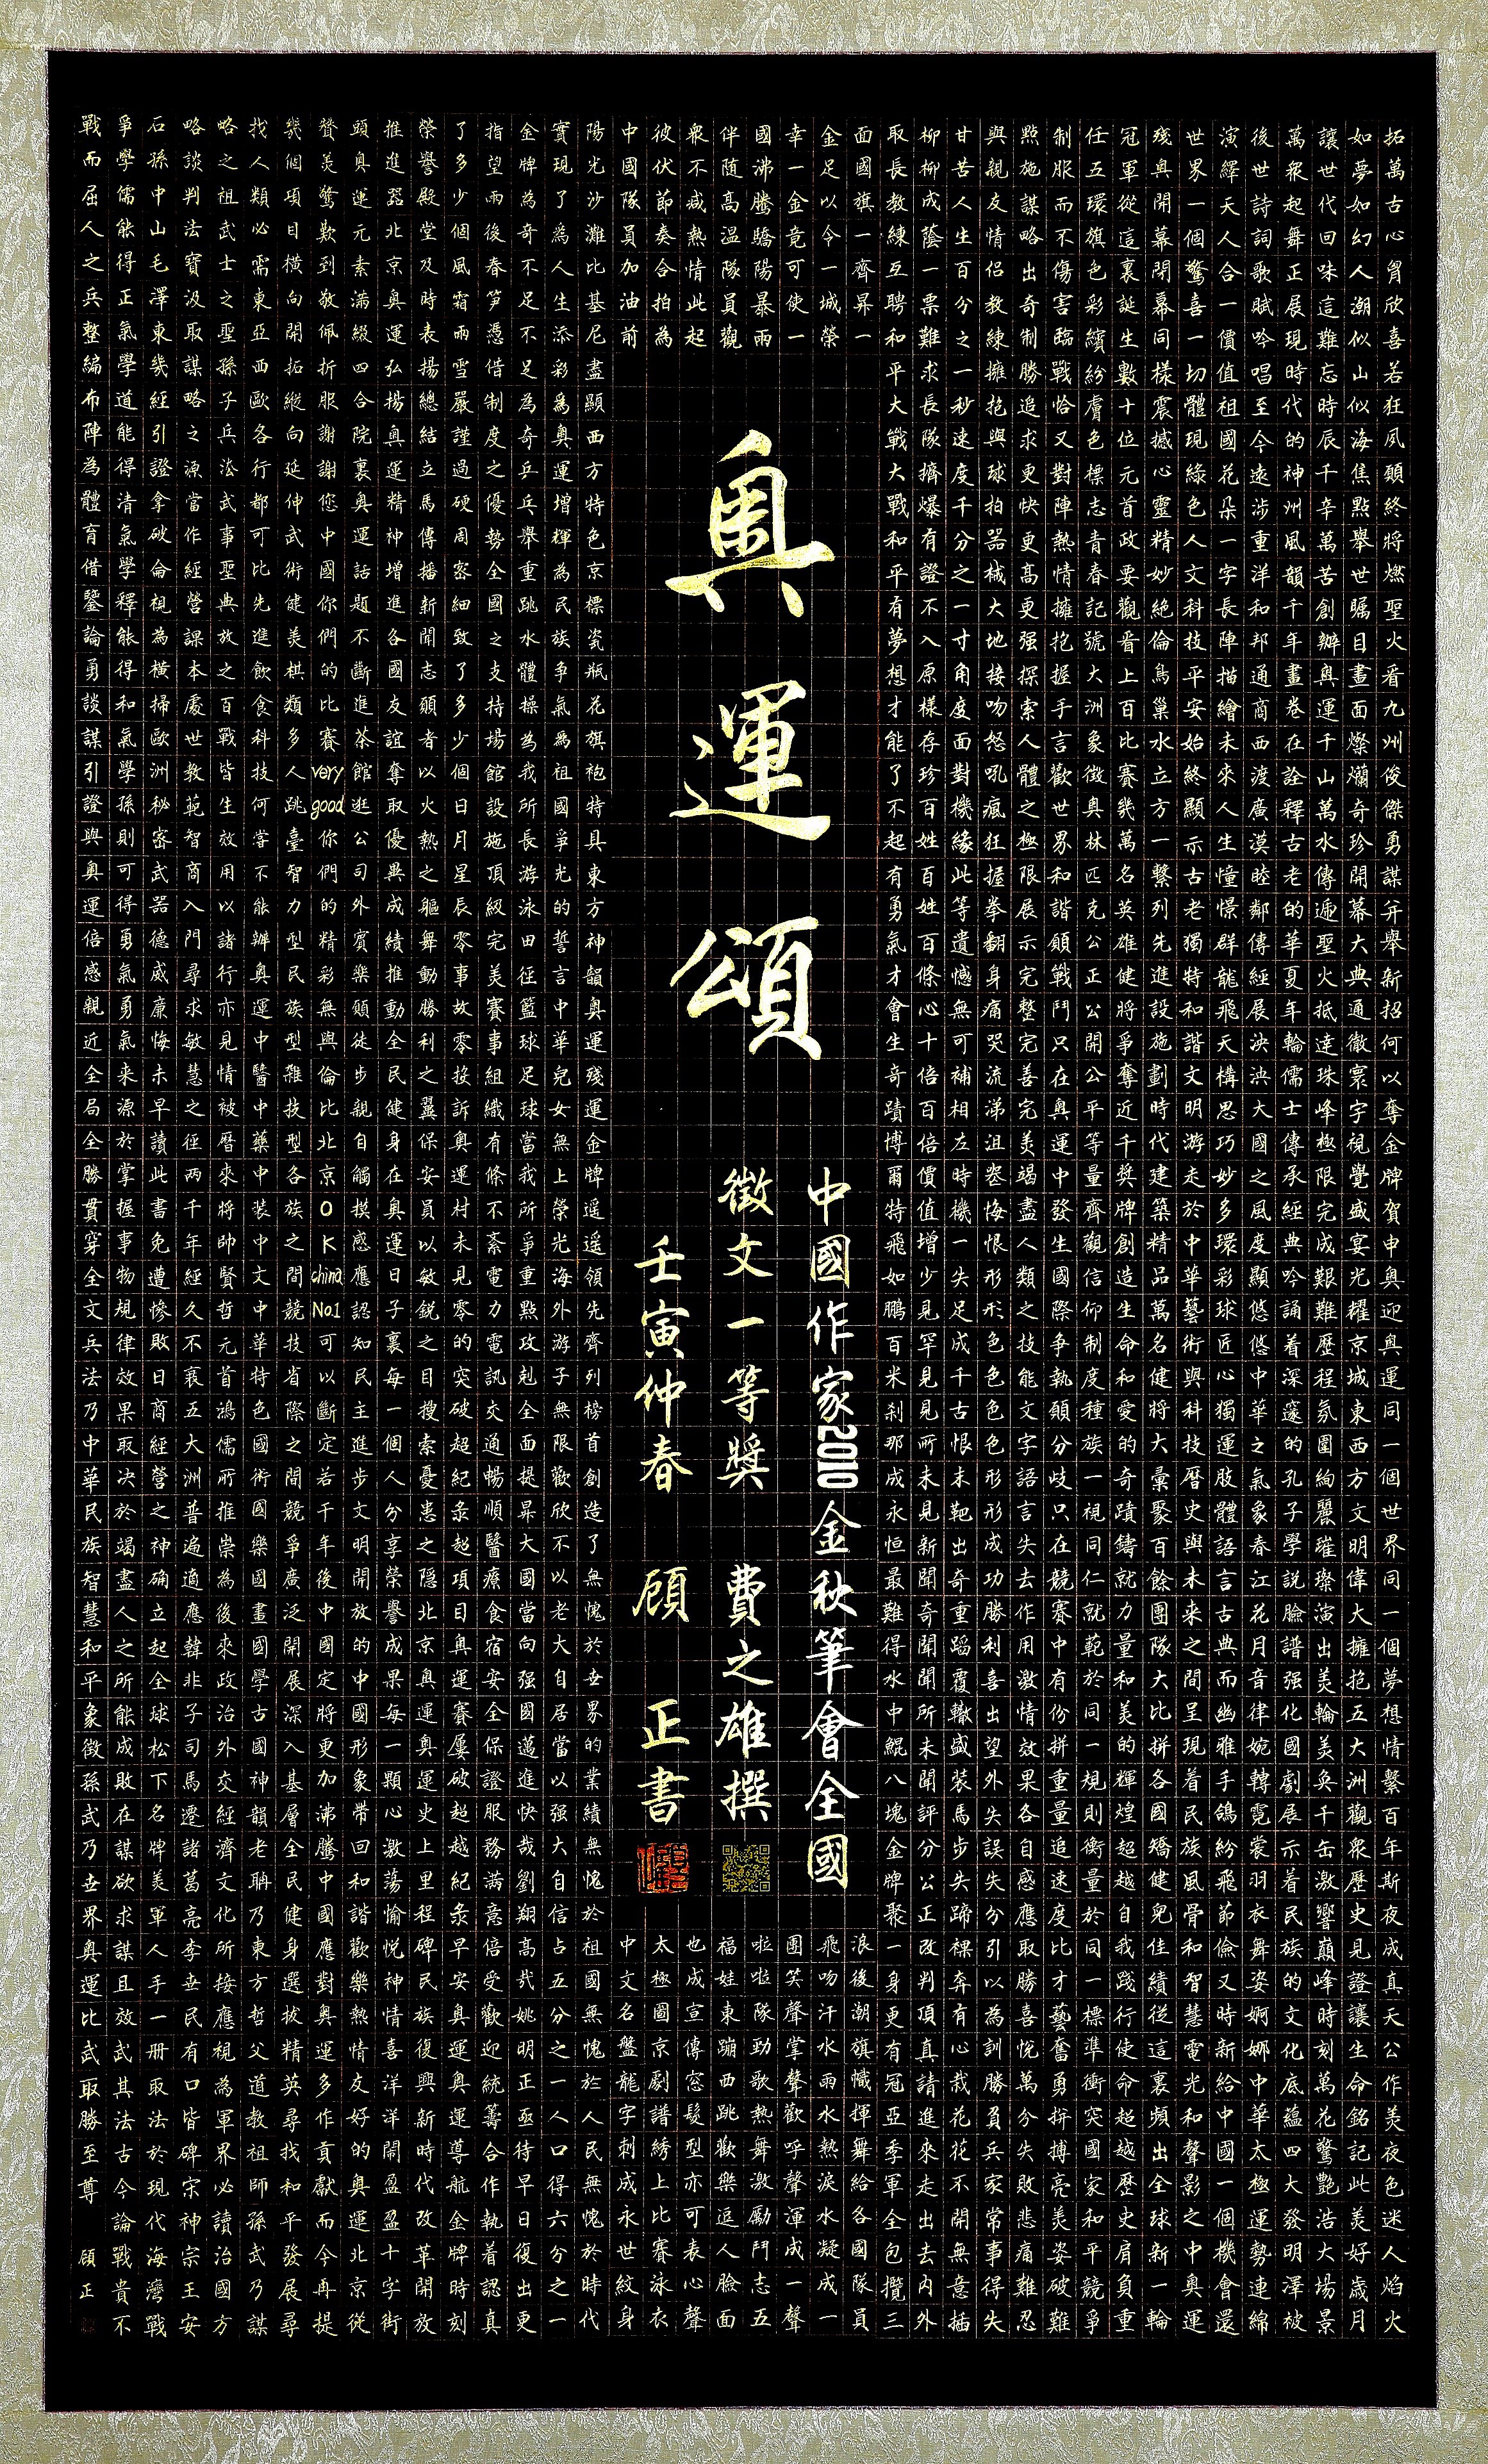 拓萬古心胷欣喜若狂夙願終將燃聖火看九州俊傑勇謀并舉新招何以奪金牌賀申奧迎奧運同一個世界同一個夢想情繫百年斯夜成真天公作美夜色迷人焰火
如夢如幻人潮似山似海焦點舉世矚目畫面燦爛奇珍開幕大典通徹寰宇視覺盛宴光耀京城東西方文明偉大擁抱五大洲觀衆歷史見證讓生命銘記此美好歲月
讓世代回味這難忘時辰千辛萬苦創辦奧運千山萬水傳遞聖火抵達珠峰極限完成艱難歷程氛圍絢麗璀璨演出美輪美奐千缶激響巔峰時刻萬花驚艷浩大場景
萬衆起舞正展現時代的神州風韻千年畫卷在詮釋古老的華夏年輪儒士傳承經典吟誦着深邃的孔子學説臉譜强化國劇展示着民族的文化底蘊四大發明澤被
後世詩詞歌賦吟唱至今遠涉重洋和邦通商西渡廣漠睦鄰傳經展泱泱大國之風度顯悠悠中華之氣象春江花月音律婉轉霓裳羽衣舞姿婀娜中華太極運勢連綿
演繹天人合一價值祖國花朵一字長陣描繪未來人生憧憬群龍飛天構思巧妙多環彩球匠心獨運肢體語言古典而幽雅手鴿紛飛節儉又時新給中國一個機會還
世界一個驚喜一切體現綠色人文科技平安始終顯示古老獨特和諧文明游走於中華藝術與科技曆史與未来之間呈現着民族風骨和智慧電光和聲影之中奧運
殘奧開幕閉幕同樣震撼心靈精妙絶倫鳥巢水立方一繫列先進設施劃時代建築精品萬名健將大彙聚百餘團隊大比拼各國矯健兒佳績從這裏頻出全球新一輪
冠軍從這裏誕生數十位元首政要觀看上百比賽幾萬名英雄健將爭奪近千獎牌創造生命和愛的奇蹟鑄就力量和美的輝煌超越自我踐行使命超越歷史肩負重
任五環旗色彩繽紛膚色標志青春記號大洲象徵奥林匹克公正公開公平等量齊觀信仰制度種族一視同仁就範於同一規則衡量於同一標準衝突國家和平競爭
制服而不傷害臨戰恰又對陣熱情擁抱握手言歡世界和諧願戰鬥只在奧運中發生國際争執願分歧只在競賽中有份拼重量追速度比才藝奮勇拼搏亮美姿破難
點施謀略出奇制勝追求更快更高更强探索人體之極限展示完整完善完美竭盡人類之技能文字語言失去作用激情效果各自感應取勝喜悦萬分失敗悲痛難忍
與親友情侣教練擁抱與球拍器械大地接吻怒吼瘋狂握拳翻身痛哭流涕沮喪悔恨形形色色色色形形成功勝利喜出望外失誤失分引以為訓勝負兵家常事得失
甘苦人生百分之一秒速度千分之一寸角度面對機緣此等遺憾無可補相左時機一失足成千古恨未靶出奇重蹈覆轍盛裝馬步失蹄裸奔有心栽花花不開無意插
柳柳成蔭一票難求長隊擠爆有證不入原樣存珍百姓百姓百條心十倍百倍價值增少見罕見見所未見新聞奇聞聞所未聞評分公正改判頂真請進來走出去内外
取長教練互聘和平大戰大戰和平有夢想才能了不起有勇氣才會生奇蹟博爾特飛如鵬百米刹那成永恒最難得水中鯤八塊金牌聚一身更有冠亞季軍全包攬三
面國旗一齊昇一
金足以令一城榮
幸一金竟可使一
國沸騰驕陽暴雨
伴隨高温隊員觀
衆不减熱情此起
彼伏節奏合拍為
中國隊員加油前
奧運頌
中國作家2010金秋筆會全國
徵文一等獎 費之雄撰
壬寅仲春 顧正書
浪後潮旗幟揮舞給各國隊員
飛吻汗水雨水熱淚水凝成一
團笑聲掌聲歡呼聲渾成一聲
啦啦隊勁歌熱舞激勵鬥志五
福娃東蹦西跳歡樂逗人臉面
也成宣傳窓髮型亦可表心聲
太極圖京劇譜綉上比賽泳衣
中文名盤龍字刺成永世紋身
陽光沙灘比基尼盡顯西方特色京標瓷瓶花旗袍特具東方神韻奧運殘運金牌遥遥領先齊列榜首創造了無愧於世界的業績無愧於祖國無愧於人民無愧於時代
實現了為人生添彩為奧運增輝為民族争氣為祖國爭光的誓言中華兒女無上榮光海外游子無限歡欣不以老大自居當以强大自信占五分之一人口得六分之一
金牌為奇不足不足為奇乒乓舉重跳水體操為我所長游泳田徑籃球足球當我所爭重點攻剋全面提昇大國當向强國邁進快哉劉翔高哉姚明正亟待早日復出更
指望雨後春笋憑借制度之優勢全國之支持場館設施頂級完美賽事組織有條不紊電力電訊交通暢順醫療食宿安全保證服務满意倍受歡迎統籌合作執着認真
了多少個風霜雨雪嚴謹過硬周密細致了多少個日月星辰零事故零投訴奧運村未見零的突破超紀录超項目奧運賽屢破超越紀录早安奧運奧運導航金牌時刻
榮譽殿堂及時表揚總結立馬傳播新聞志願者以火熱之軀舞動勝利之翼保安員以敏鋭之目搜索憂患之隠北京奧運奧運史上里程碑民族復興新時代改革開放
推進器北京奧運弘揚奧運精神增進各國友誼奪取優異成績推動全民健身在奧運日子裏每一個人分享榮譽成果每一顆心激蕩愉悦神情喜洋洋鬧盈盈十字街
頭奧運元素满綴四合院裏奧運話題不斷進茶館逛公司外賓樂願徒步親自觸摸感應認知民主進步文明開放的中國形象帶回和諧歡樂熱情友好的奧運北京從
贊美驚歎到敬佩折服謝謝您中國你們的比賽very good你們的精彩無與倫比北京OK china No.1可以斷定若干年後中國定將更加沸騰中國應對奧運多作貢獻而今再提
幾個項目横向開拓縱向延伸武術健美棋類多人跳臺智力型民族型雜技型各族之間競技省際之間競爭廣泛開展深入基層全民健身選拔精英尋找和平發展尋
找人類必需東亞西歐各行都可比先進飲食科技何嘗不能辦奧運中醫中藥中装中文中華特色國術國樂國畫國學古國神韻老聃乃東方哲父道教祖師孫武乃謀
略之祖武士之聖孫子兵法武事聖典放之百戰皆生效用以諸行亦見情被曆來將帥賢哲元首鴻儒所推崇為後來政治外交經濟文化所接應視為軍界必讀治國方
略談判法寶汲取謀略之源當作經營課本處世教範智商入門尋求敏慧之徑两千年經久不衰五大洲普遍適應韓非子司馬遷諸葛亮李世民有口皆碑宋神宗王安
石孫中山毛澤東幾經引證拿破侖視為横掃歐洲秘密武器德威廉悔未早讀此書免遭慘敗日商經營之神确立起全球松下名牌美軍人手一册取法於現代海灣戰
爭學儒能得正氣學道能得清氣學釋能得和氣學孫則可得勇氣勇氣来源於掌握事物規律效果取决於竭盡人之所能成敗在謀欲求謀且效武其法古今論戰貴不
戰而屈人之兵整編布陣為體育借鑒論勇談謀引證與奧運倍感親近全局全勝貫穿全文兵法乃中華民族智慧和平象徵孫武乃世界奧運比武取勝至尊 顧正